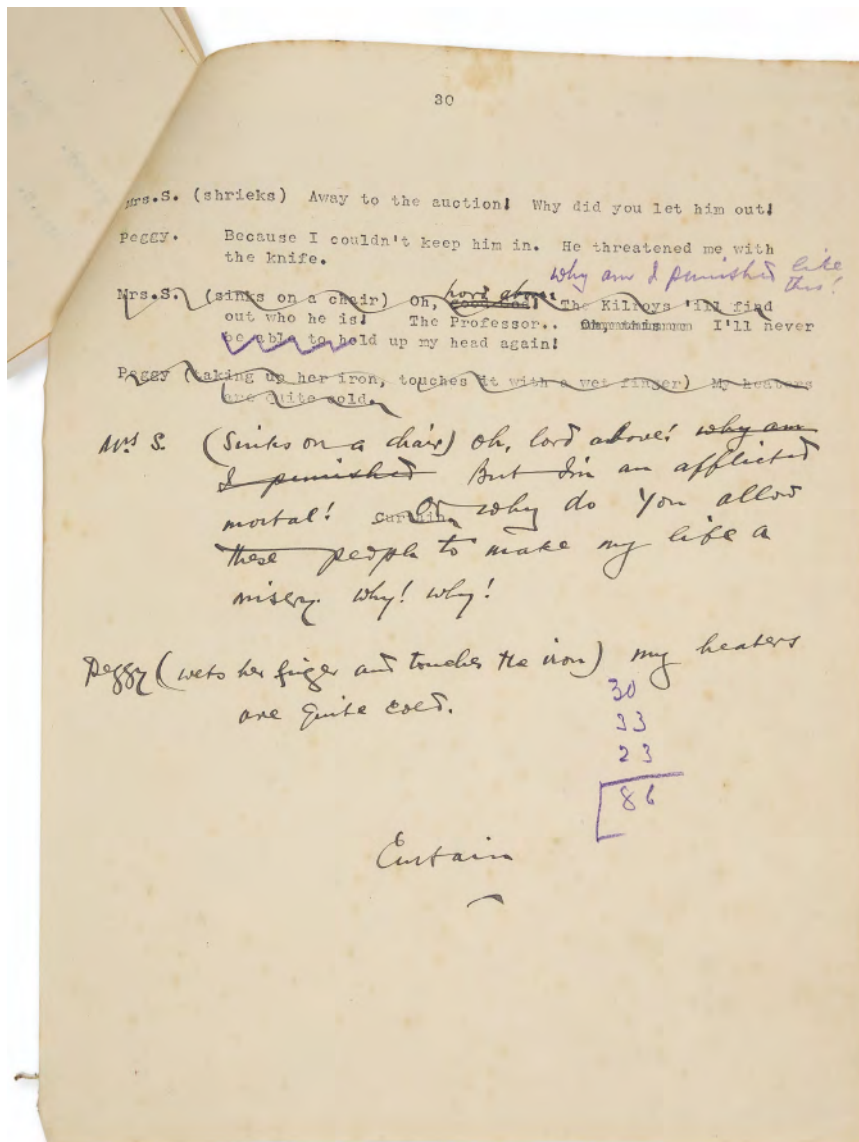 30
Mrs.S. (shrieks) Away to the auction! Why did you let him out!
Peggy. Because I couldn't keep him in. He threatened me with
the knife.
why am I punished like
this!
lord above
Mrs.S. (sinks on a chair) Oh, The Kilroys 'ill find
out who he is! The Professor.. I'll never
be able to hold up my head again!
Peggy (taking up her iron, touches it with a wet finger) My heaters
are quite cold.
Mrs S. (Sinks on a chair) Oh, lord above! why am
I punished But I'm an afflicted
mortal! Curtain. Oh why do You allow
these people to make my life a
misery. Why! Why!
Peggy (wets her finger and touches the iron) My heaters
are quite cold.
30
33
23
86
Curtain